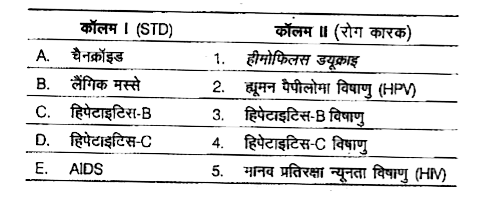 कॉलम I (STD) कॉलम II (रोग कारक)
A. चैनक्रॉइड 1. हीमोफिलस डयूक्राइ
B. लैंगिक मस्से 2. ह्यूमन पैपीलोमा विषाणु (HPV)
C. हिपेटाइटिस-B 3. हिपेटाइटिस-B विषाणु
D. हिपेटाइटिस-C 4. हिपेटाइटिस-C विषाणु
E. AIDS 5. मानव प्रतिरक्षा न्यूनता विषाणु (HIV)